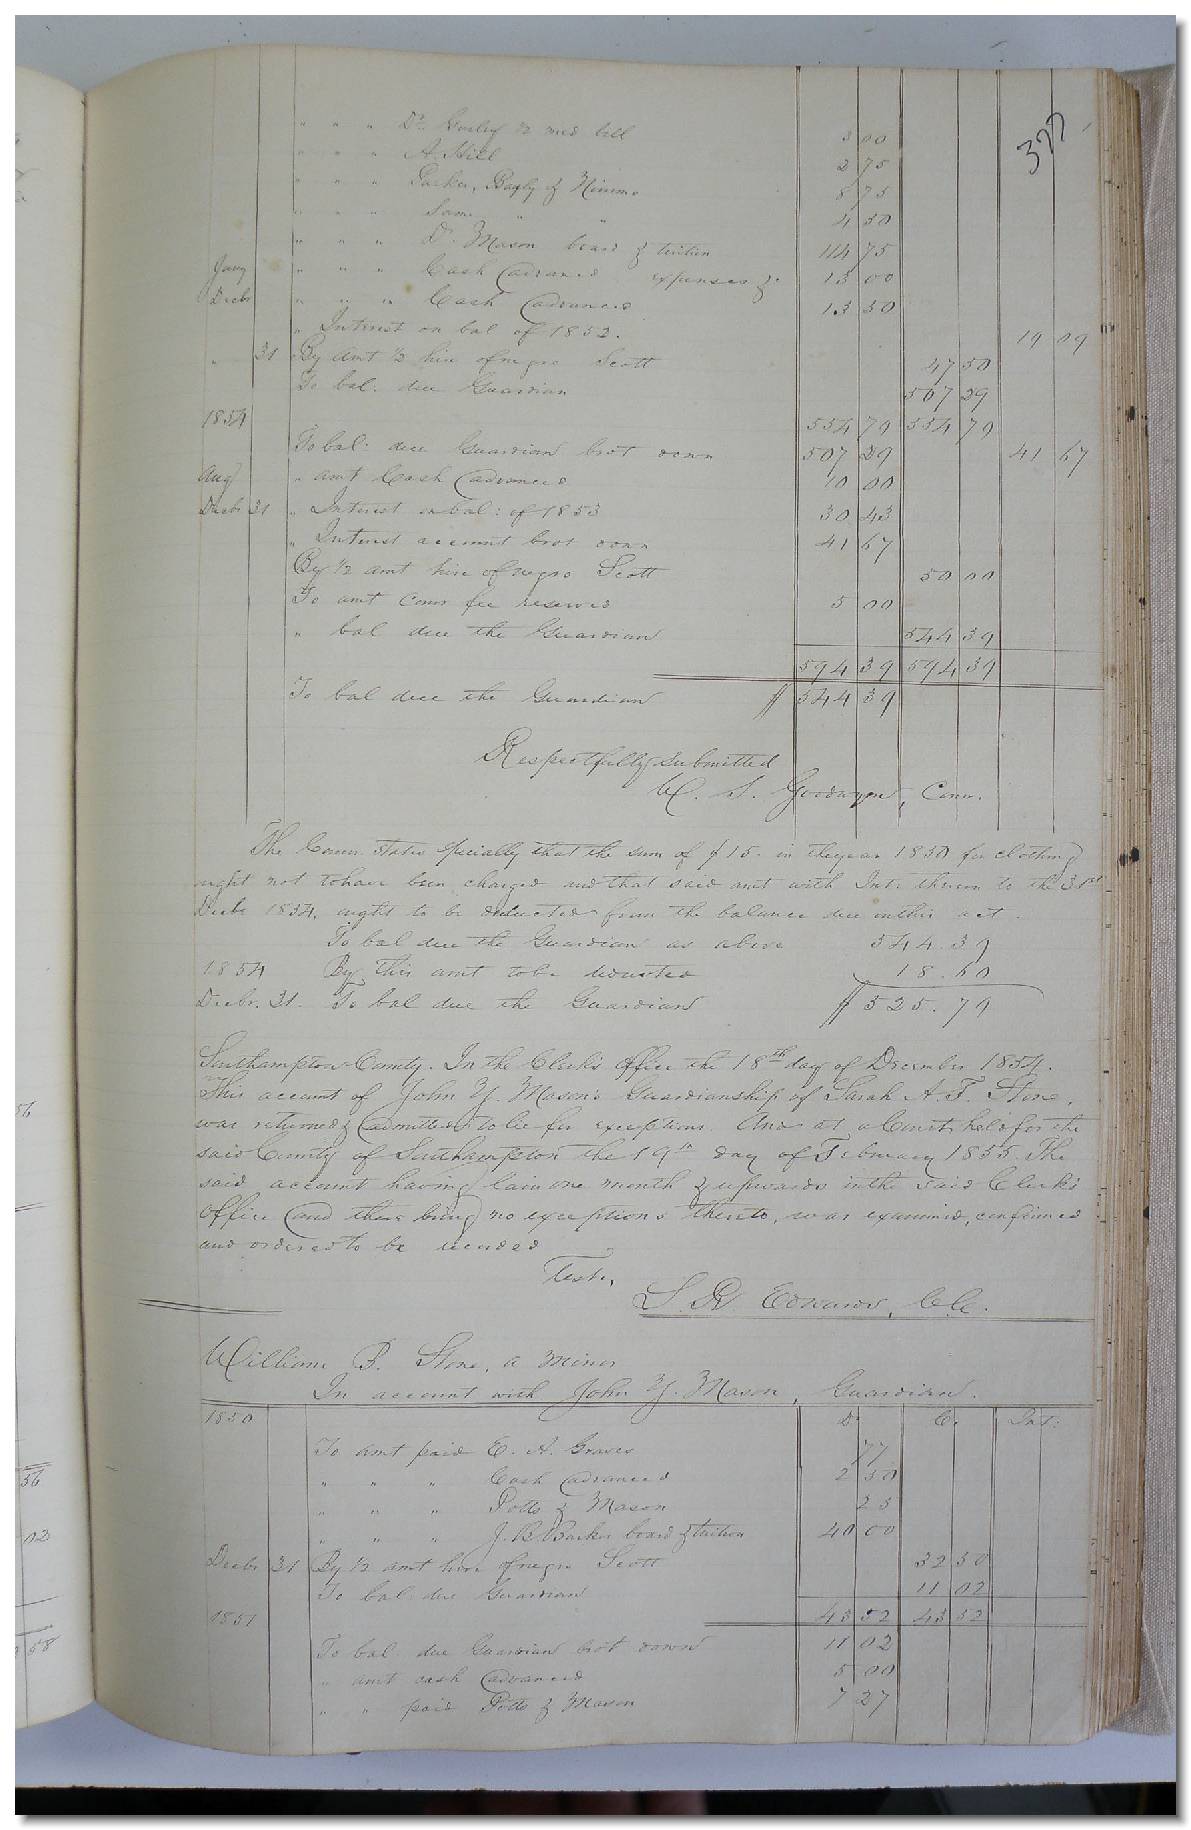 377
" " " Dr. Gurley ½ med bill 3 00
" " " A. Hill 2 75
" " " Parker, Bagly & Nimmo 8 75
" " " Same " " 4 50
" " " D. Mason board & tuition 114 75
Jany " " " Cash advanced expenses &c 13 00
Decbr " " " Cash advanced 13 50
" Interest on bal of 1852. 19 09
" 31 By Amt ½ hire of negro Scott 47 50
To bal: due Guardian 507 29
1854 554 79 554 79
To bal: due Guardian brot down 507 29 41 67
Aug " amt Cash advanced 10 00
Decbr 31 " Interest on bal: of 1853 30 43
" Interest account brot down 41 67
By ½ amt hire of negro Scott 50 00
To amt Comr fee reserved 5 00
" bal due the Guardian 544 39
594 39 594 39
To bal due the Guardian $ 544 39
Respectfully submitted
W. S. Goodwyn, Comr.
The Comr. states specially that the sum of $15. in the year 1850 for clothing
ought not to have been charged and that said amt with Int: thereon to the 31st
Decbr 1854, ought to be deducted from the balance due on this act.
To bal due the Guardian as above 544.39
1854 By this amt to be deducted 18.60
Decbr. 31. To bal due the Guardian $ 525.79
Southampton County. In the Clerk's Office the 18th day of December 1854.
This account of John Y. Mason's Guardianship of Sarah A. F. Stone,
was returned & admitted to lie for exceptions. And at a Court held for the
said County of Southampton the 19th day of February 1855. The
said account having lain one month & upwards in the said Clerk's
Office and there being no exceptions thereto, was examined, confirmed
and ordered to be recorded
Test,
L. R. Edwards, C.C.
William P. Stone, a minor
In account with John Y. Mason, Guardian.
1850 Dr. Cr. Int:
To amt paid E. A. Graves 77
" " " Cash advanced 2 50
" " " Potts & Mason 25
" " " J. B. Barkes board & tuition 40 00
Decbr 31 By ½ amt hire of negro Scott 32 50
To bal: due Guardian 11 02
1851 43 52 43 52
To bal: due Guardian brot down 11 02
" amt cash advanced 5 00
" " paid Potts & Mason 7 27
56
56
02
58